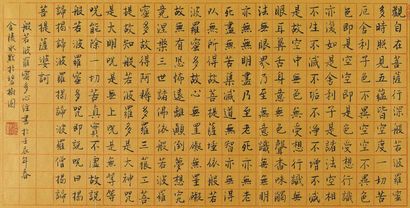 觀自在菩薩行深般若波羅蜜
多時照見五蘊皆空度一切苦
厄舍利子色不異空空不異色
色即是空空即是色受想行識
亦復如是舍利子是諸法空相
不生不滅不垢不淨不增不減
是故空中無色無受想行識無
眼耳鼻舌身意無色聲香味觸
法無眼界乃至無意識界無
無明亦無無明盡乃至無老死
亦無老死盡無苦集滅道無智
亦無得以無所得故菩提薩埵
依般若波羅蜜多故心無罣礙
無罣礙故無有恐怖遠離顛倒夢想究
竟涅槃三世諸佛依般若波羅
蜜多故得阿耨多羅三藐三菩
提故知般若波羅蜜多是大神
咒是大明咒是無上咒是無等等
咒能除一切苦真實不虛故說
般若波羅蜜多咒即說咒曰揭
諦揭諦波羅揭諦波羅僧揭諦
菩提薩婆訶
般若波羅蜜多心經書於壬辰年春